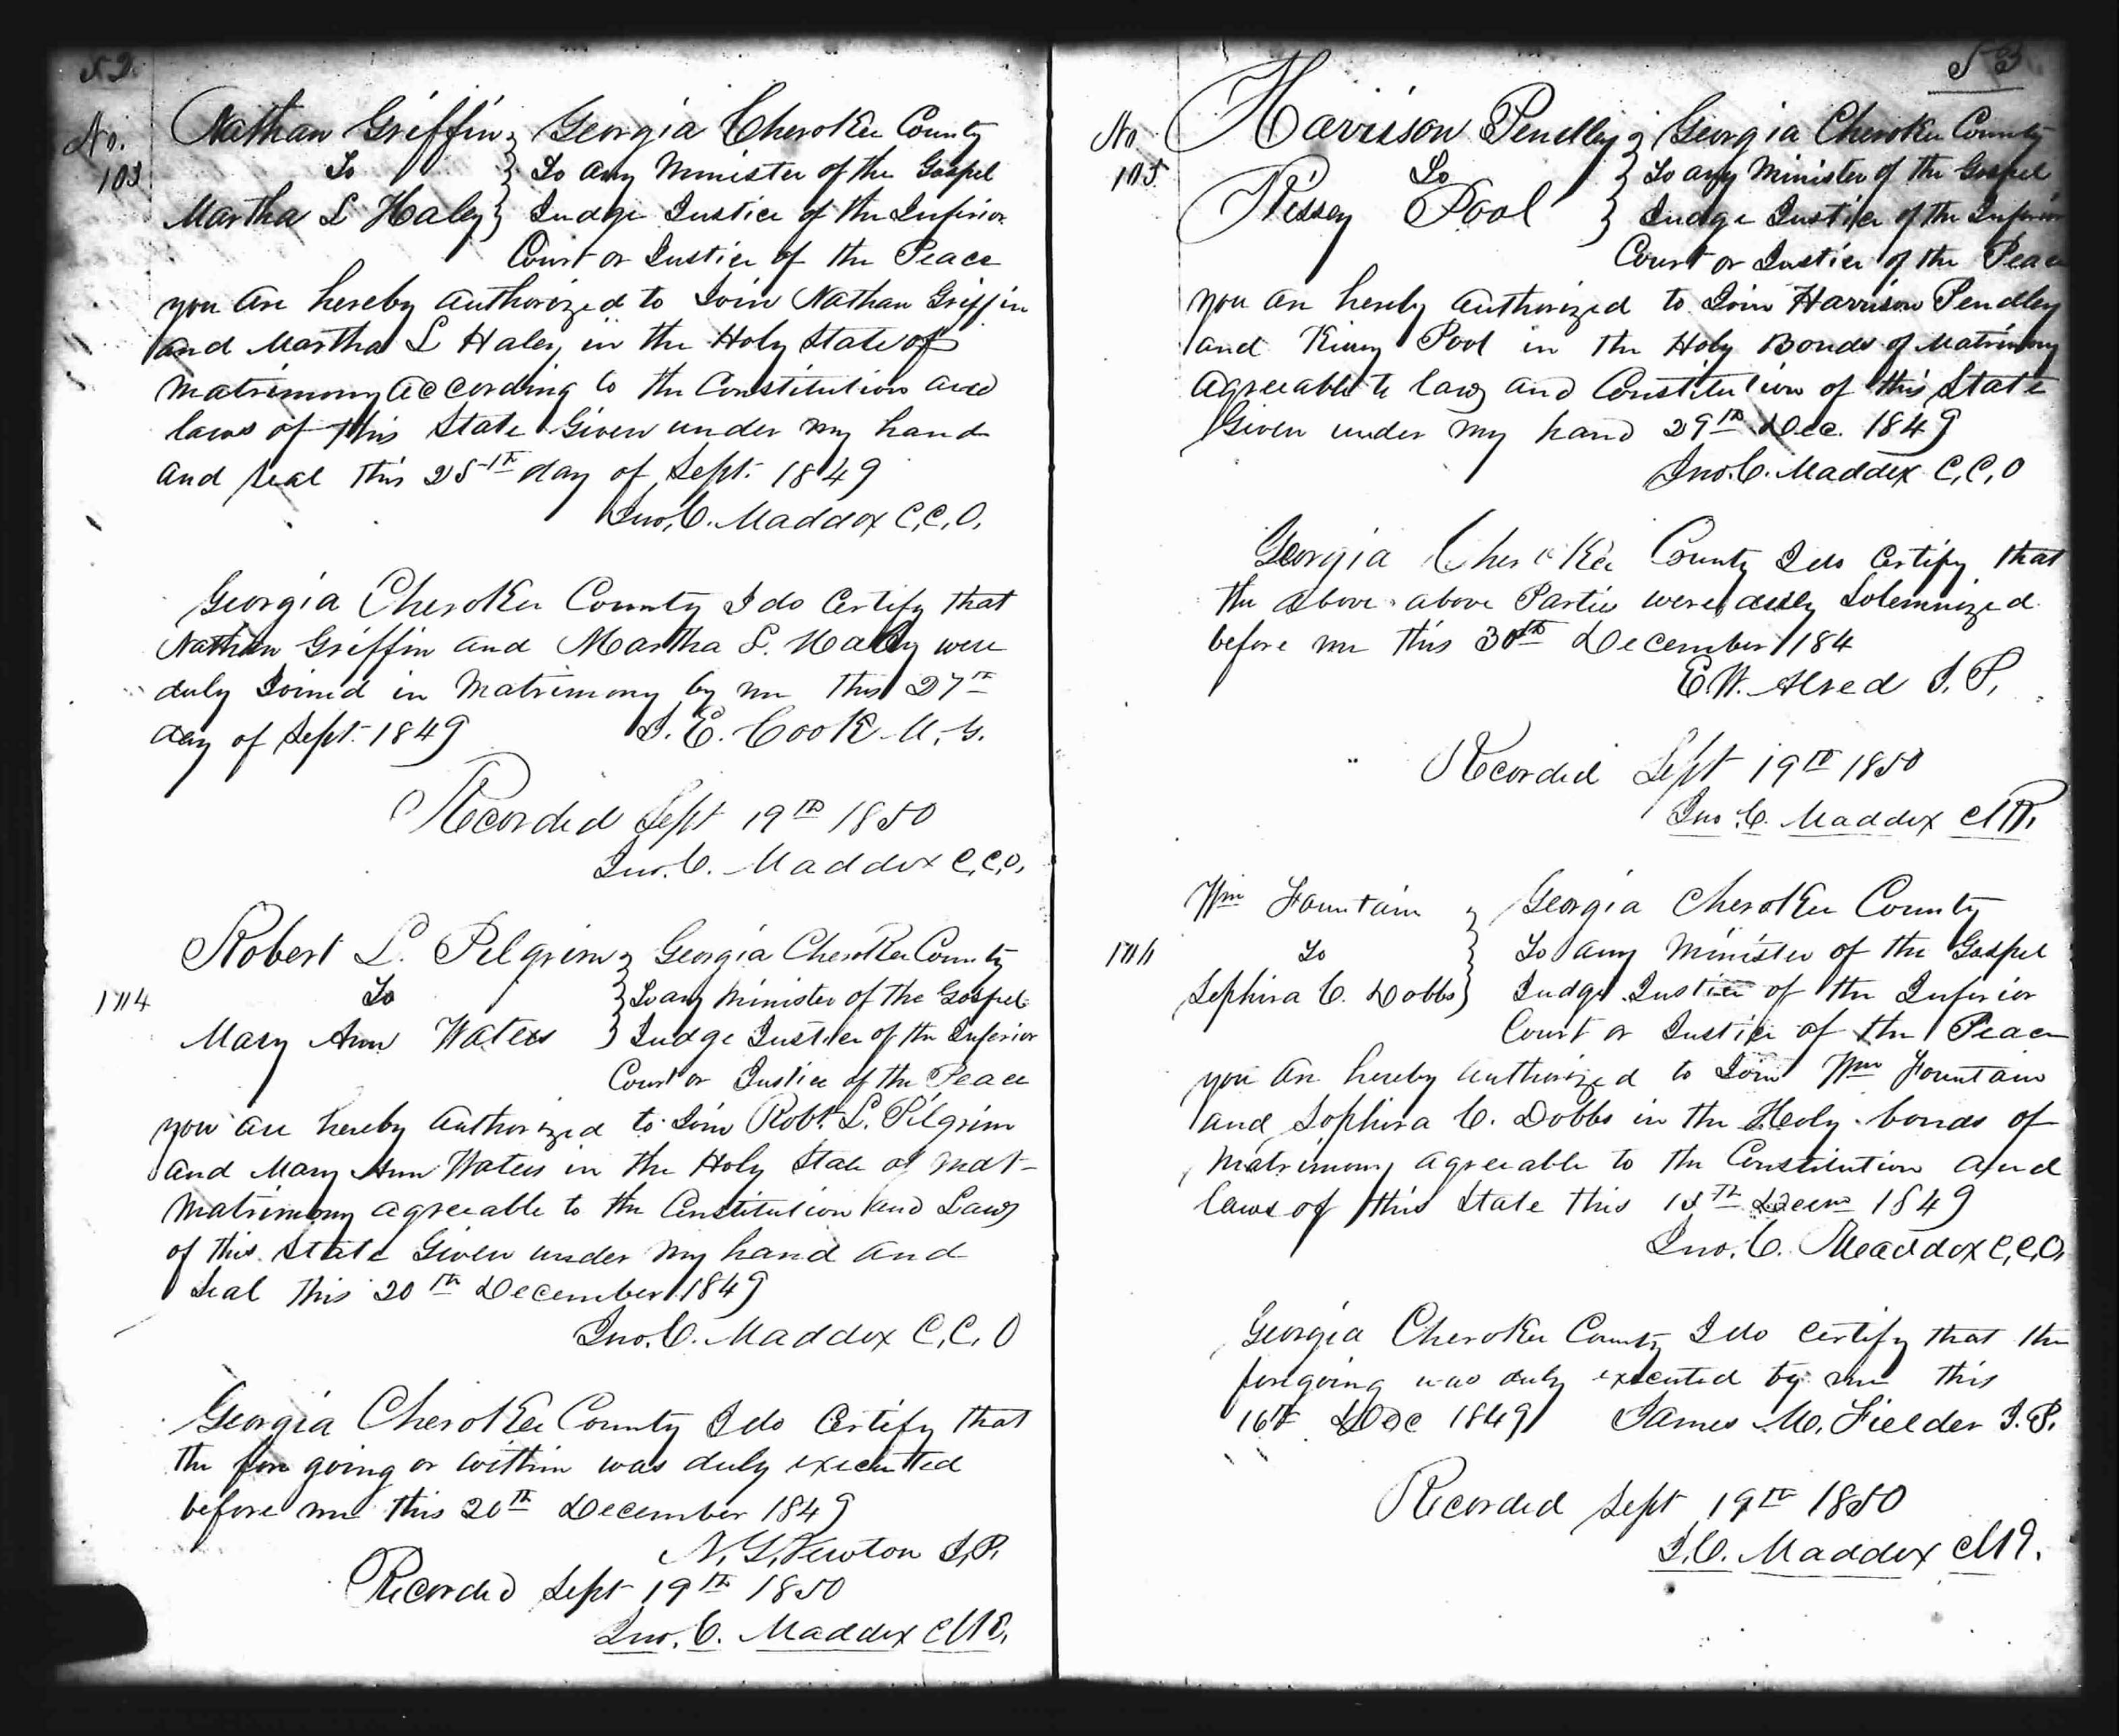 52.
No. 103
Nathan Griffin } Georgia Cherokee County
To } To any Minister of the Gospel
Martha L Haley } Judge Justice of the Inferior
Court or Justice of the Peace
you are hereby authorized to Join Nathan Griffin
and Martha L Haley in the Holy State of
Matrimony according to the Constitution and
laws of this State Given under my hand
and seal this 25th day of Sept. 1849
Jno. C. Maddox C.C.O.
Georgia Cherokee County I do Certify that
Nathan Griffin and Martha L. Haley were
duly Joined in Matrimony by me this 27th
day of Sept. 1849 J. E. Cook M.G.
Recorded Sept 19th 1850
Jno. C. Maddox C.C.O.
Robert L. Pilgrim } Georgia Cherokee County
104 To } To any Minister of the Gospel
Mary Ann Waters } Judge Justice of the Inferior
Court or Justice of the Peace
you are hereby authorized to Join Robt. L. Pilgrim
and Mary Ann Waters in the Holy State of Mat-
Matrimony agreeable to the Constitution and Laws
of this State Given under my hand and
Seal this 20th December 1849
Jno. C. Maddox C.C.O
Georgia Cherokee County I do Certify that
the fore going or within was duly executted
before me this 20th December 1849
N. G. Newton J.P.
Recorded Sept 19th 1850
Jno. C. Maddox
53
No 105
Harrison Pendley } Georgia Cherokee County
To } To any Minister of the Gospel
Kissey Pool } Judge Justice of the Inferior
Court or Justice of the Peace
you are hereby authorized to Join Harrison Pendley
and Pool in the Holy Bonds of Matrimony
agreeable to laws and Constitution of this State
Given under my hand 29th Dec. 1849
Jno. C. Maddox C.C.O
Georgia Cherokee County I do Certify that
the above above Parties were duly Solemnized
before me this 30th December 184
E.W. Alred J.P.
Recorded Sept 19th 1850
Jno. C. Maddox
Wm Fountain } Georgia Cherokee County
106 To } To any Minister of the Gospel
Sephira C. Dobbs } Judge Justice of the Inferior
Court or Justice of the Peace
you are hereby authorized to Join Wm Fountain
and Sophira C. Dobbs in the Holy bonds of
Matrimony agreeable to the Constitution and
laws of this State this 1849
Jno. C. Maddox C.C.O.
Georgia Cherokee County I do Certify that the
foregoing was duly executed by me this
16th Dec 1849 James M. Fielder J.P.
Recorded Sept 19th 1850
J.C. Maddox